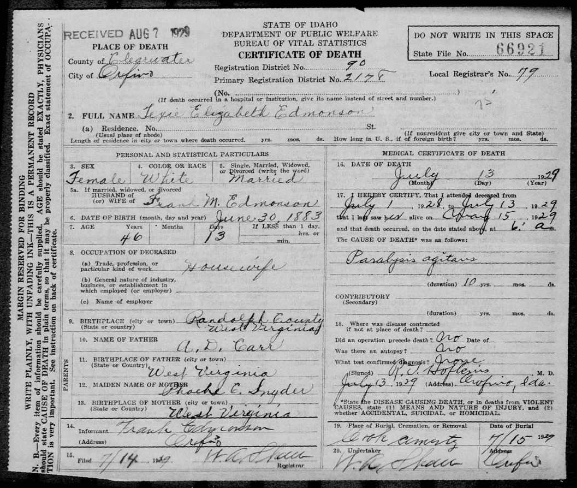 RECEIVED AUG 7 1929
STATE OF IDAHO
DEPARTMENT OF PUBLIC WELFARE
BUREAU OF VITAL STATISTICS
CERTIFICATE OF DEATH
DO NOT WRITE IN THIS SPACE
State File No. 66921
PLACE OF DEATH
County of Clearwater
City of Orofino
Registration District No. 90
Primary Registration District No. 2178
Local Registrar's No. 79
(No.
(If death occurred in a hospital or institution, give its name instead of street and number.)
2. FULL NAME Texie Elizabeth Edmonson
(a) Residence. No. St.
(Usual place of abode) (If nonresident give city or town and State)
Length of residence in city or town where death occurred. yrs. mos. ds. How long in U. S., if of foreign birth? yrs. mos. ds.
PERSONAL AND STATISTICAL PARTICULARS
3. SEX Female
4. COLOR OR RACE White
5. Single, Married, Widowed, or Divorced (write the word) Married
5a. If married, widowed, or divorced
HUSBAND of
(or) WIFE of Frank M. Edmonson
6. DATE OF BIRTH (month, day and year) June 30, 1883
7. AGE 46 Months Days 13 If LESS than 1 day, hrs. or min.
8. OCCUPATION OF DECEASED
(a) Trade, profession, or particular kind of work Housewife
(b) General nature of industry, business, or establishment in which employed (or employer)
(c) Name of employer
9. BIRTHPLACE (city or town) Randolph County
(State or country) West Virginia
PARENTS
10. NAME OF FATHER A. D. Carr
11. BIRTHPLACE OF FATHER (city or town)
(State or Country) West Virginia
12. MAIDEN NAME OF MOTHER E. Snyder
13. BIRTHPLACE OF MOTHER (city or town)
(State or country) West Virginia
14. Informant Frank Edmonson
(Address) Orofino
15. Filed 7/14 1929 Registrar
MEDICAL CERTIFICATE OF DEATH
16. DATE OF DEATH July 13 1929
(Month) (Day) (Year)
17. I HEREBY CERTIFY, That I attended deceased from
July 1 1928, to July 13 1929
that I last saw her alive on 15, 1929
and that death occurred, on the date stated above, at 6 a m.
The CAUSE OF DEATH* was as follows:
Paralysis agitans
(duration) 10 yrs. mos. ds.
CONTRIBUTORY
(Secondary)
(duration) yrs. mos. ds.
18. Where was disease contracted
if not at place of death?
Did an operation precede death? No Date of
Was there an autopsy? No
What test confirmed diagnosis? None
(Signed) M. D.
July 13, 1929 (Address) Orofino, Ida.
*State the DISEASE CAUSING DEATH, or in deaths from VIOLENT CAUSES, state (1) MEANS AND NATURE OF INJURY, and (2) whether ACCIDENTAL, SUICIDAL, or HOMICIDAL.
19. Place of Burial, Cremation, or Removal Date of Burial
7/15 1929
20. Undertaker (Address)
Orofino
MARGIN RESERVED FOR BINDING
WRITE PLAINLY, WITH UNFADING INK—THIS IS A PERMANENT RECORD
N. B.—Every item of information should be carefully supplied. AGE should be stated EXACTLY. PHYSICIANS
should state CAUSE OF DEATH in plain terms, so that it may be properly classified. Exact statement of OCCUPATION
is very important. See instructions on back of certificate.